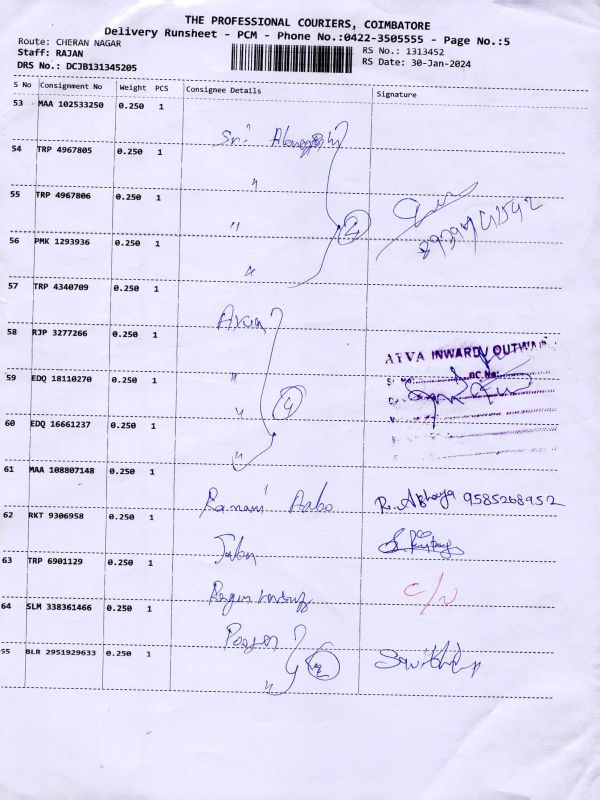 THE PROFESSIONAL COURIERS, COIMBATORE
Delivery Runsheet - PCM - Phone No.:0422-3505555 - Page No.:5
Route: CHERAN NAGAR
RS No.: 1313452
Staff: RAJAN
RS Date: 30-Jan-2024
DRS No.: DCJB131345205
S No Consignment No Weight PCS Consignee Details Signature
53 MAA 102533250 0.250 1
Sri
54 TRP 4967805 0.250 1
"
55 TRP 4967806 0.250 1
"
56 PMK 1293936 0.250 1
"
57 TRP 4340709 0.250 1
58 RJP 3277266 0.250 1
INWARD/ OUTWARD
59 EDQ 18110270 0.250 1
"
"
4
60 EDQ 16661237 0.250 1
"
61 MAA 108807148 0.250 1
Ramani R. Abhaya 9585268952
62 RKT 9306958 0.250 1
63 TRP 6901129 0.250 1
C/N
64 SLM 338361466 0.250 1
55 BLR 2951929633 0.250 1
2
"